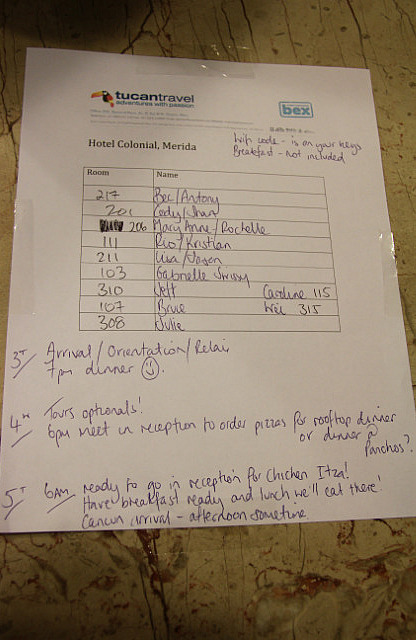 tucantravel
adventures with passion
bex
Wifi code - is on your keys
Breakfast - not included
Hotel Colonial, Merida
Room Name
217 Bec/Antony
201
206 Mary Anne/Rochelle
111 Rio/Kristian
211 Lisa/Jason
103 Gabrielle
310 Jeff Caroline 115
107 Brue Wei 315
308 Julie
3rd Arrival/Orientation/Relax
7pm dinner
4th Tours optionals!
6pm meet in reception to order pizzas for rooftop dinner
or dinner @
Panchos?
5th 6AM ready to go in reception for Chichen Itza!
Have breakfast ready and lunch we'll eat there!
Cancun arrival - afternoon sometime